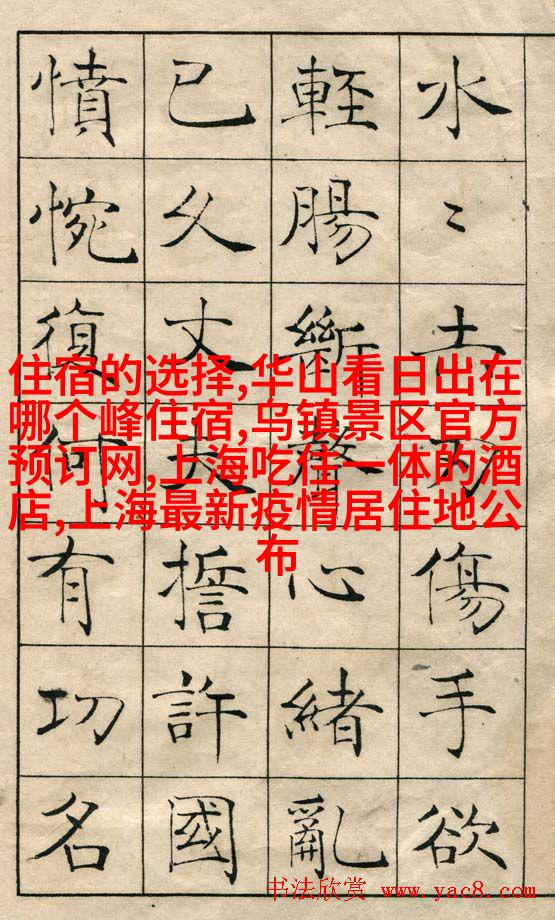 水〻赤刃傷手欲
輕腸斷聲心緒亂
已久丈夫誓許國
憤惋復何有功名
住宿的选择,华山看日出在
哪个峰住宿,乌镇景区官方
预订网,上海吃住一体的酒
店,上海最新疫情居住地公
布
书法欣赏 www.yac8.com